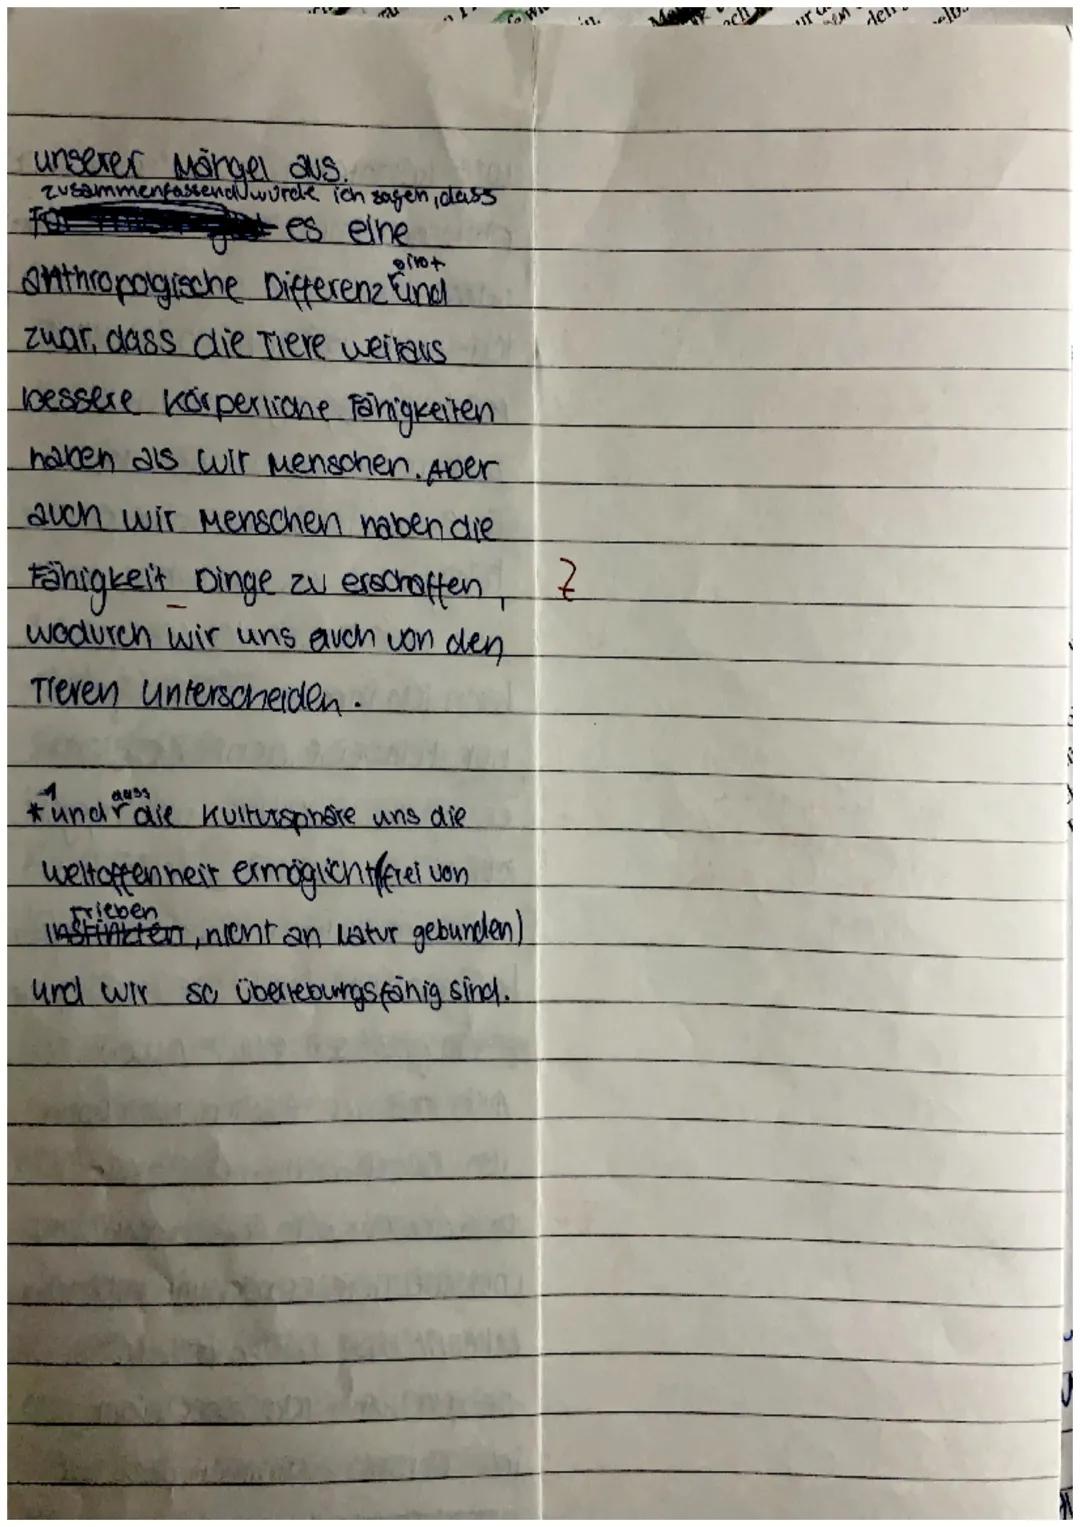 unserer Mängel aus.
zusammenfassend würde ich sagen, dass
es eine
anthropolgische Differenz gibt und
zwar, dass die Tiere weitaus
bessere körperliche Fähigkeiten
haben als wir Menschen. Aber
auch wir Menschen haben die
Fähigkeit Dinge zu erschaffen, Z
wodurch wir uns auch von den
Tieren unterscheiden.
*1 und dass die Kultursphäre uns die
Weltoffenheit ermöglicht (frei von
Trieben
Instinkten, nicht an Natur gebunden)
und wir so überlebungsfähig sind.